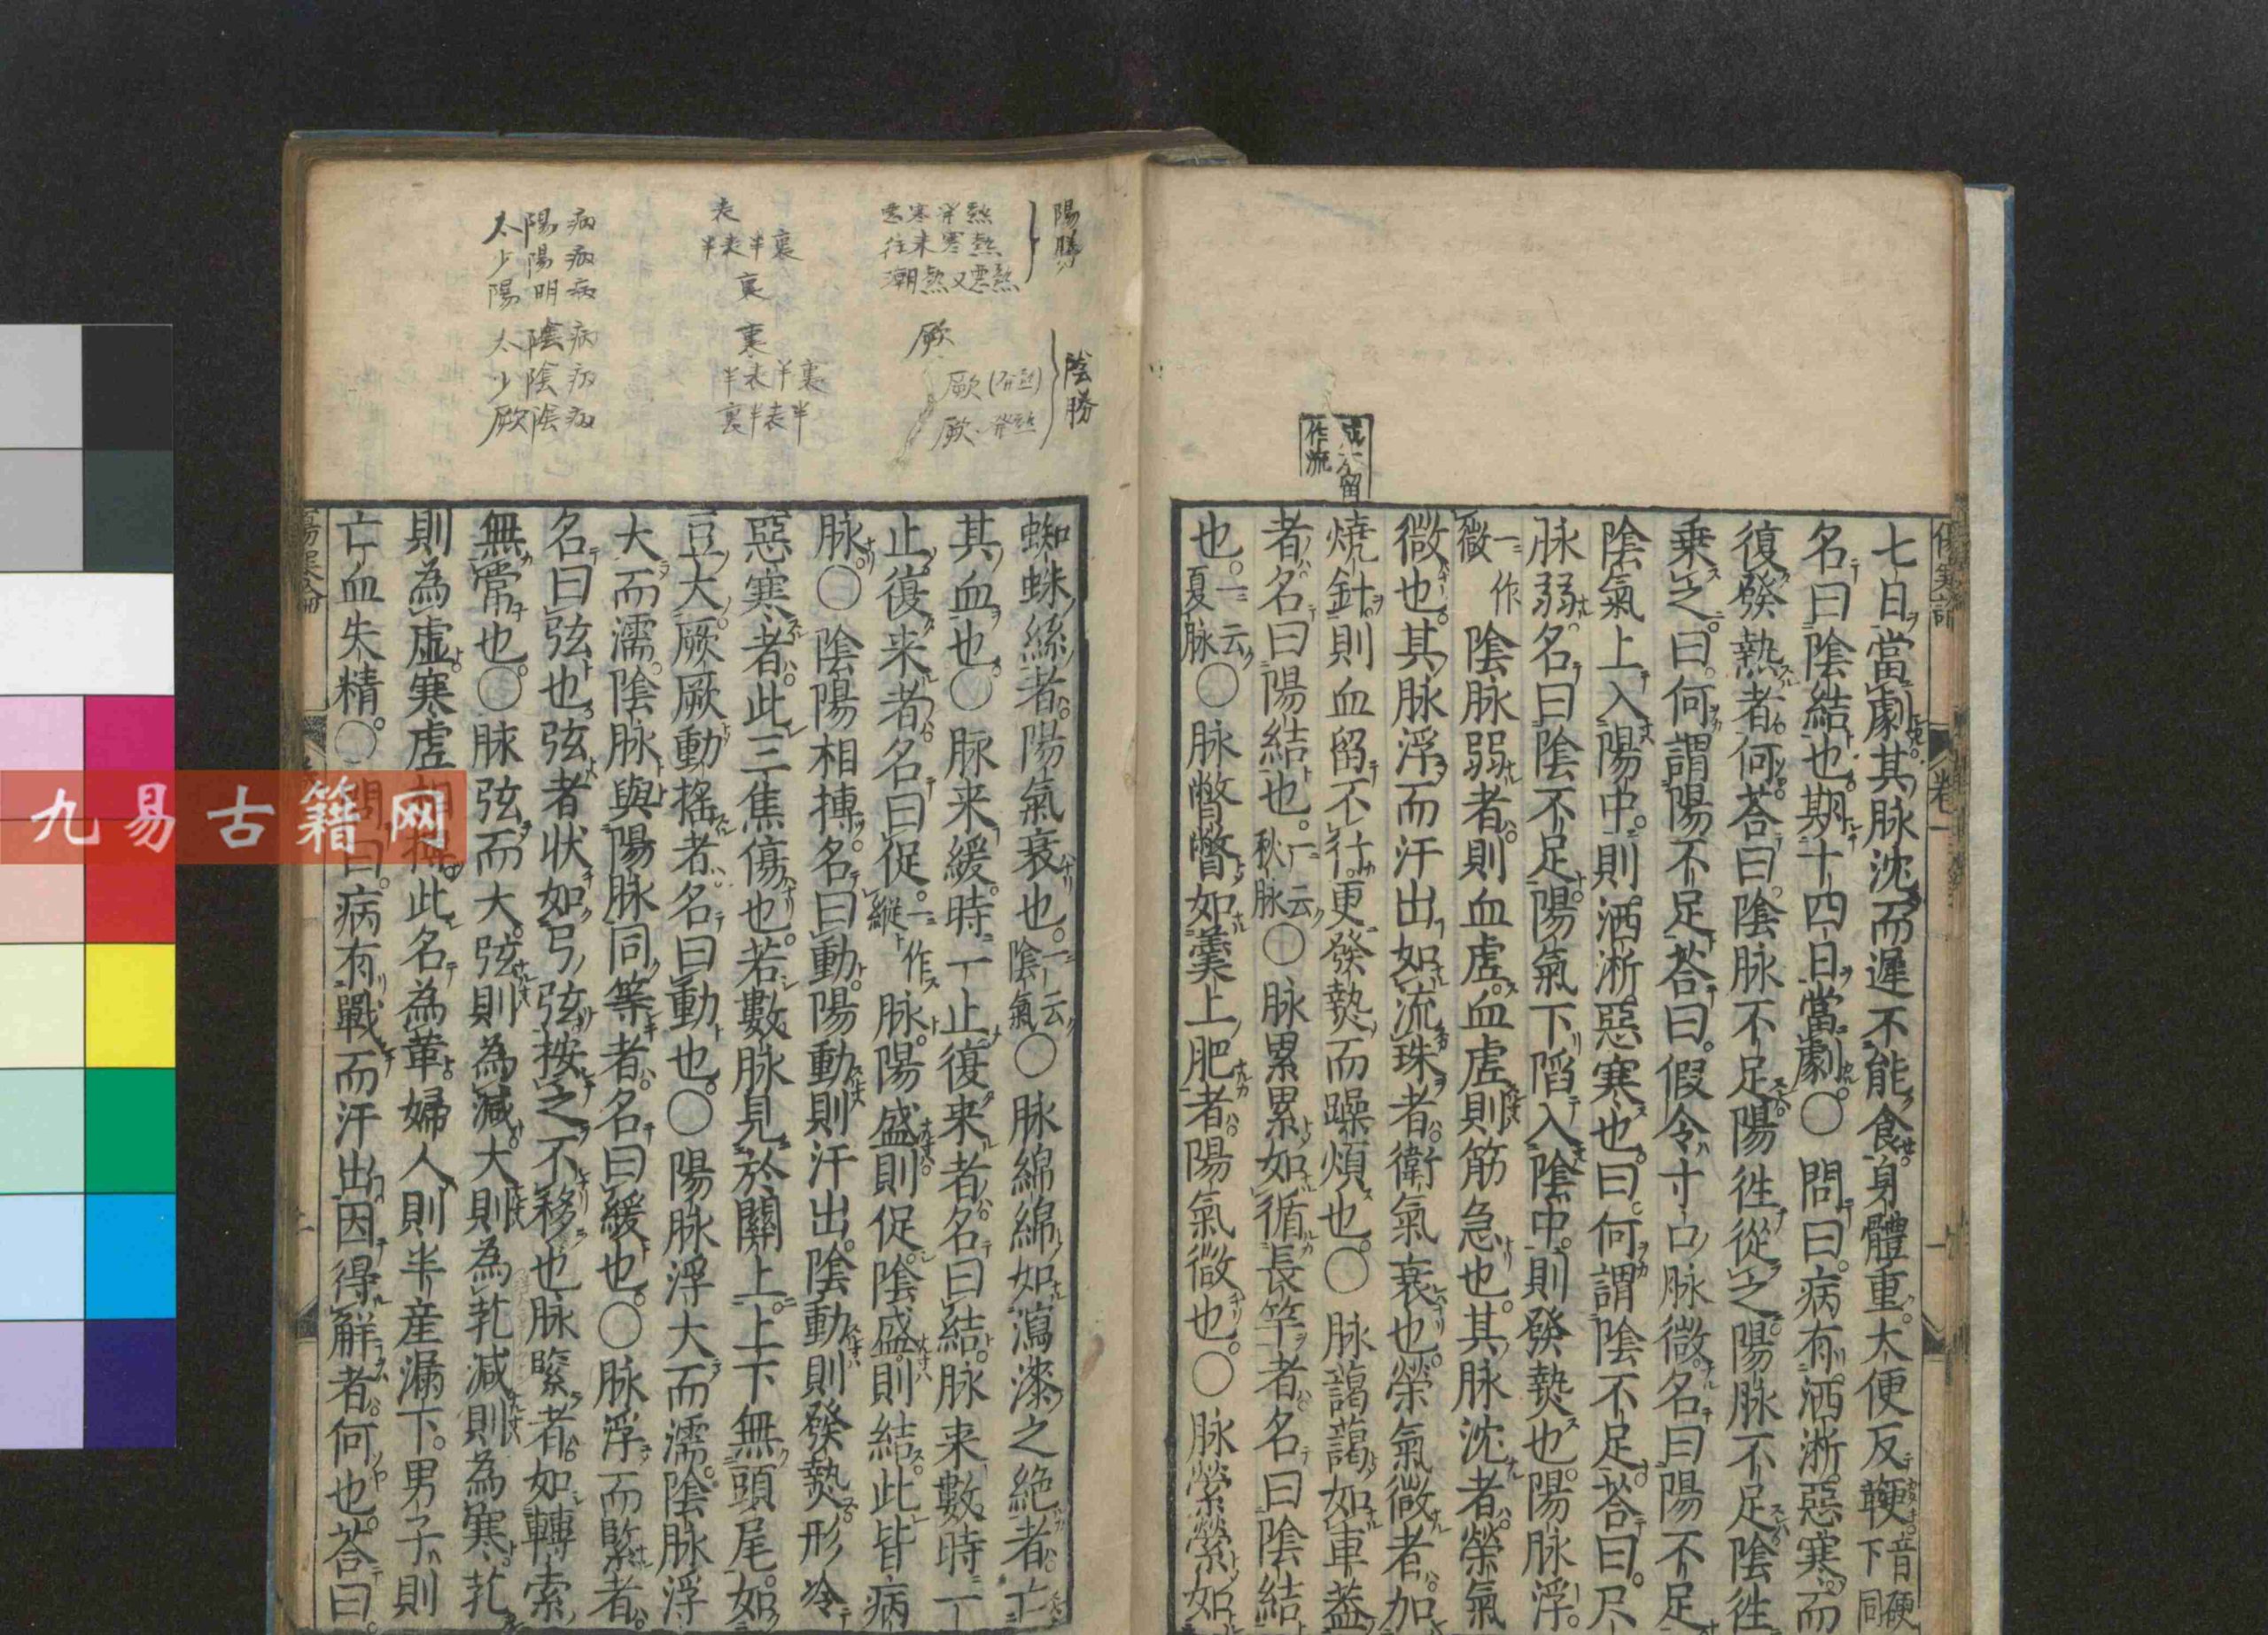 七日當劇其脉沈而遲不能食身體重大便反鞕音硬下同
名曰陰結也期十四日當劇○問曰病有洒淅惡寒而
復發熱者何荅曰陰脉不足陽徃從之陽脉不足陰徃
乘之曰何謂陽不足荅曰假令寸口脉微名曰陽不足
陰氣上入陽中則洒淅惡寒也曰何謂陰不足荅曰尺
脉弱名曰陰不足陽氣下陷入陰中則發熱也陽脉浮
一作微陰脉弱者則血虛血虛則筋急也其脉沈者榮氣
微也其脉浮而汗出如流珠者衛氣衰也榮氣微者加
燒針則血留不行更發熱而躁煩也○脉藹藹如車蓋
者名曰陽結也一云秋脉○脉累累如循長竿者名曰陰結
也一云夏脉○脉瞥瞥如羹上肥者陽氣微也○脉縈縈如
蜘蛛絲者陽氣衰也一云陰氣○脉綿綿如瀉漆之絶者亡
其血也○脉来緩時一止復来者名曰結脉来數時一
止復来者名曰促一作縱脉陽盛則促陰盛則結此皆病
脉○陰陽相摶名曰動陽動則汗出陰動則發熱形冷
惡寒者此三焦傷也若數脉見於關上上下無頭尾如
豆大厥厥動搖者名曰動也○陽脉浮大而濡陰脉浮
大而濡陰脉與陽脉同等者名曰緩也○脉浮而緊者
名曰弦也弦者状如弓弦按之不移也脉緊者如轉索
無常也○脉弦而大弦則為減大則為芤減則為寒芤
則為虛寒虛相摶此名為革婦人則半産漏下男子則
亡血失精○問曰病有戰而汗出因得解者何也荅曰
卷一
作流
陽勝
惡寒発熱
往来寒熱
潮熱又悪熱
陰勝
厥
厥
厥 発熱
表
半表半裏
裏
裏
半表半裏
裏半表半
太陽病
少陽病
陽明病
太陰病
少陰病
厥陰病
九易古籍网